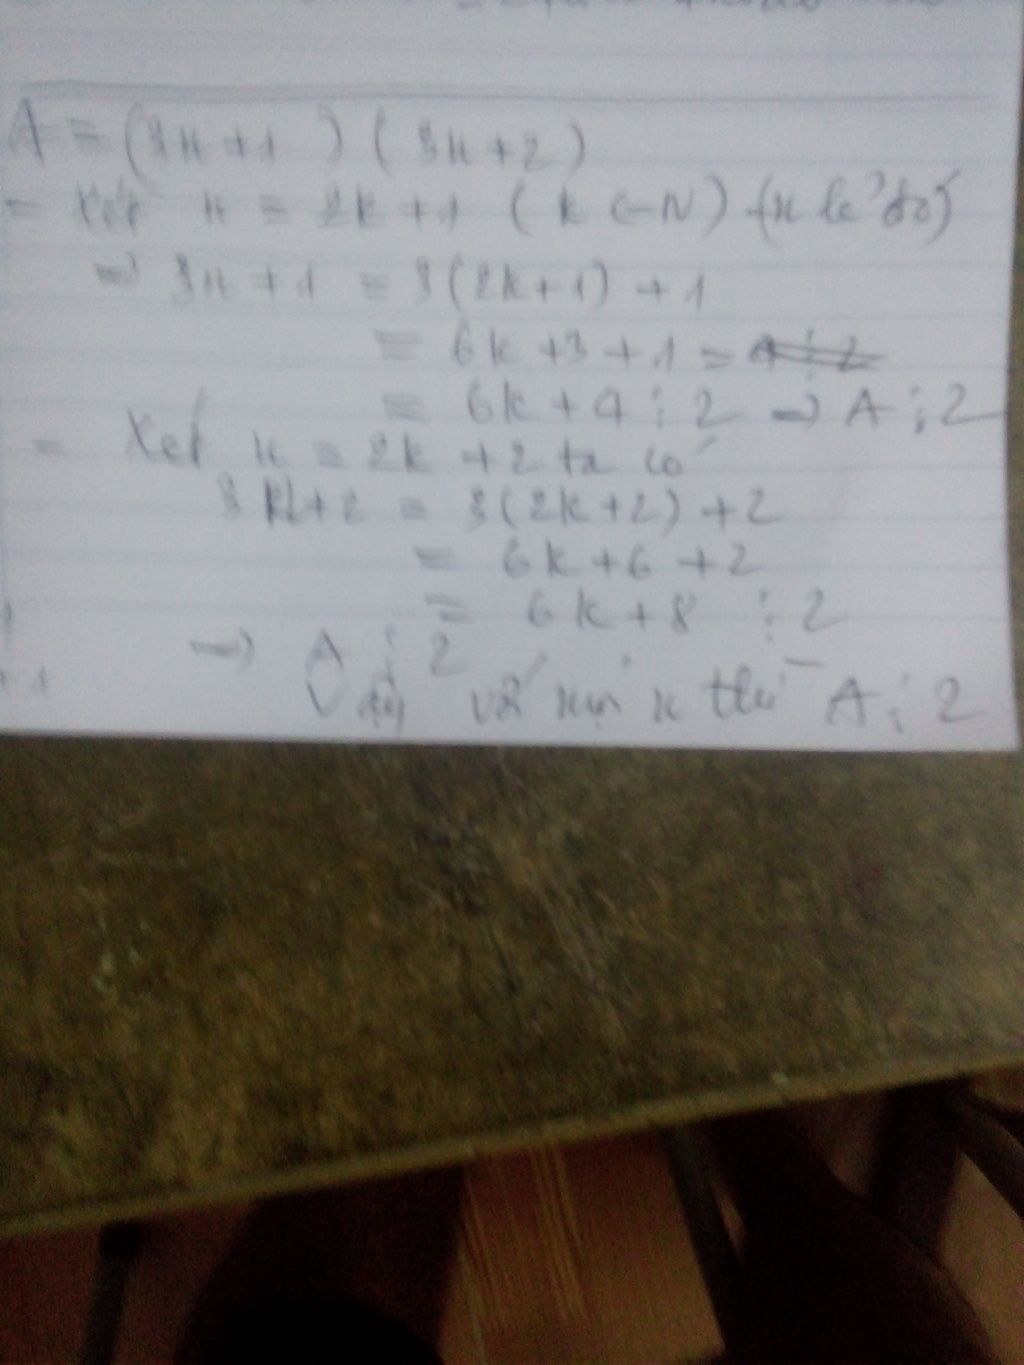 A = (3n + 1) (3n + 2)
- Xét n = 2k + 1 (k ∈ N) (n lẻ
⇒ 3n + 1 = 3(2k+1) + 1
= 6k + 3 + 1 =
= 6k + 4 ⋮ 2 ⇒ A ⋮ 2
- Xét n = 2k + 2 ta có
3n + 2 = 3(2k+2) + 2
= 6k + 6 + 2
= 6k + 8 ⋮ 2
⇒ A ⋮ 2
Vậy với mọi n thì A ⋮ 2